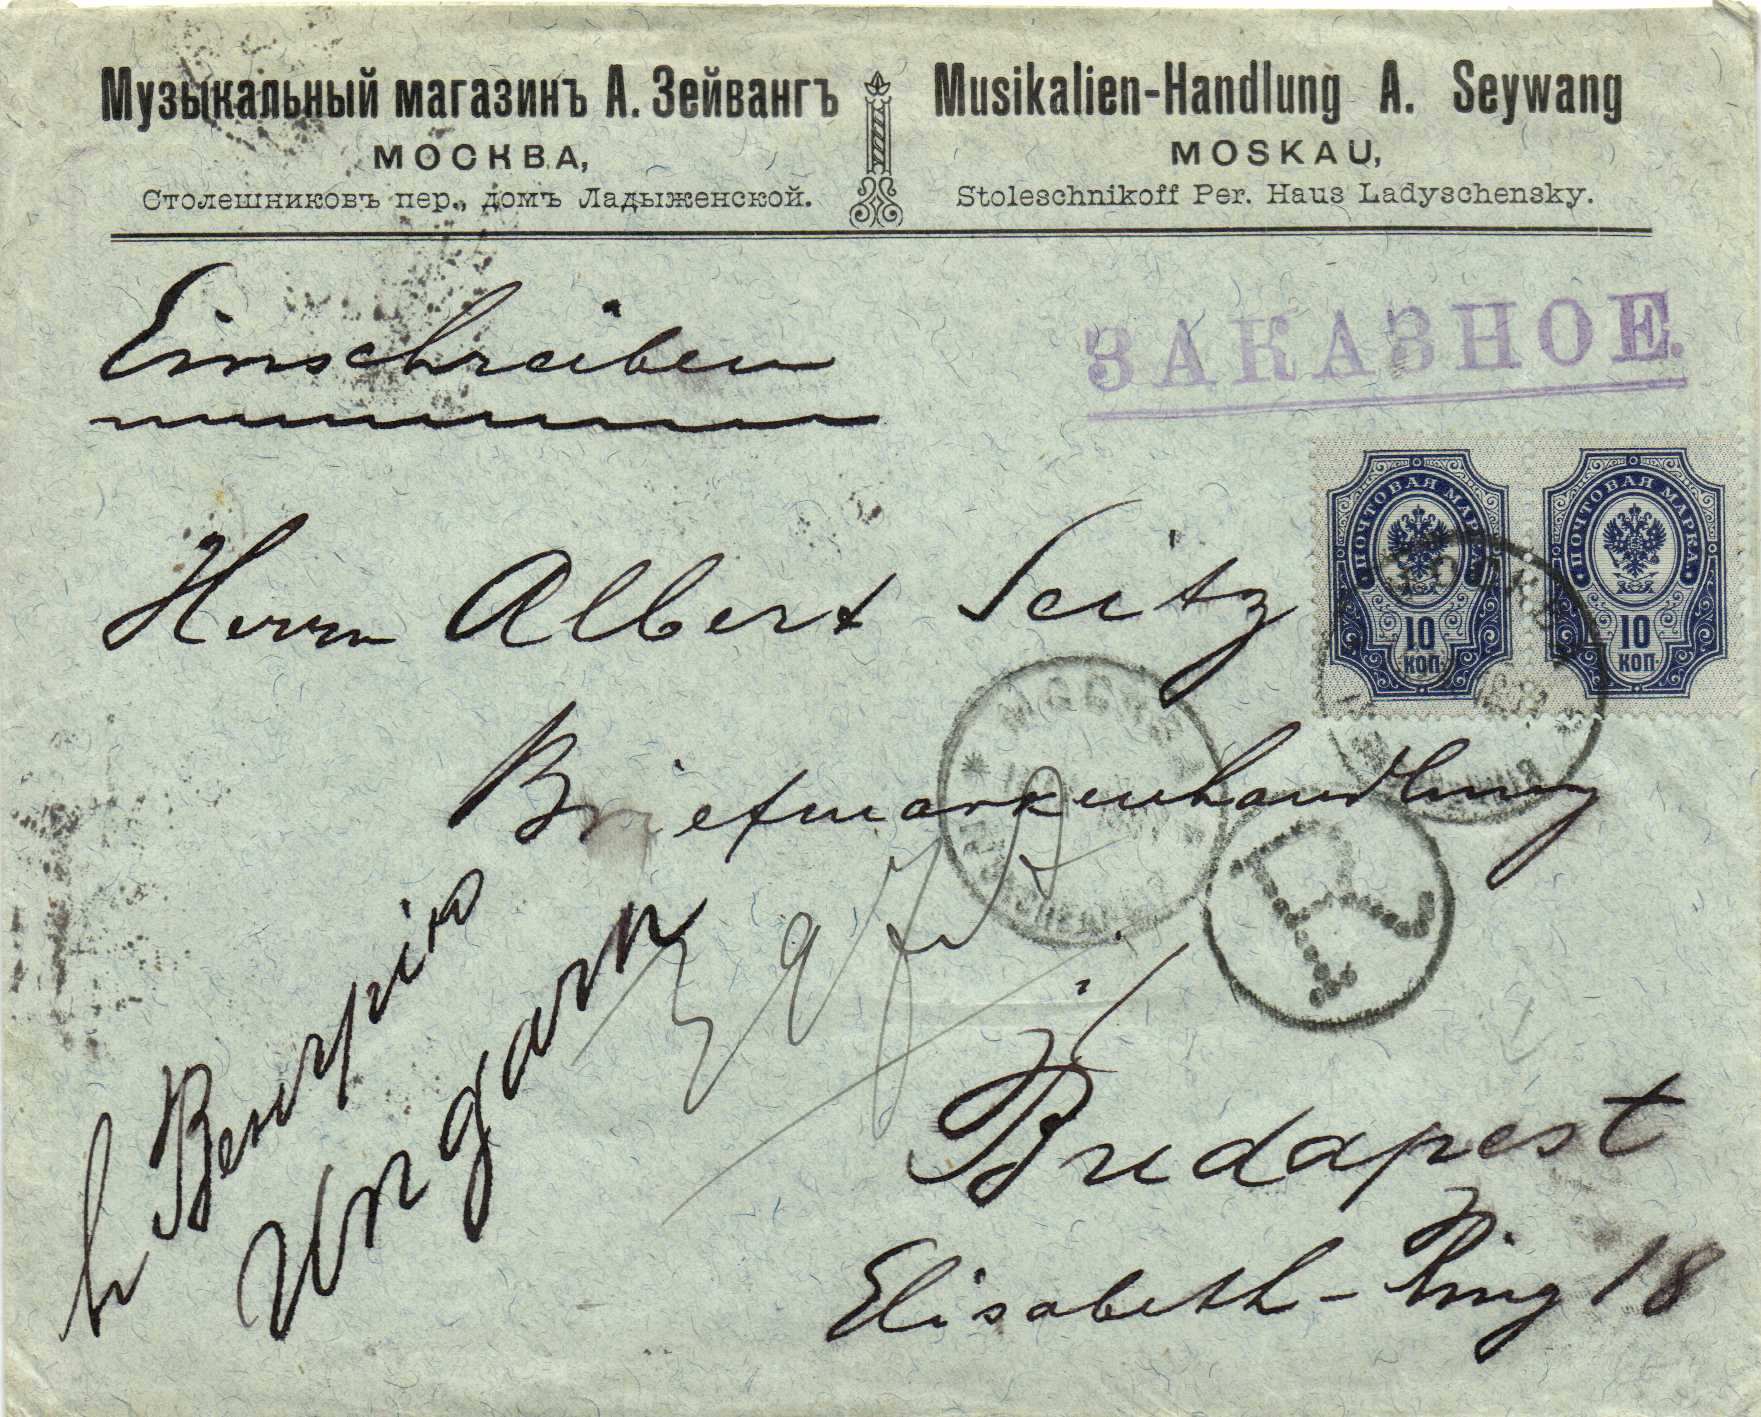 Музыкальный магазинъ А. Зейвангъ
МОСКВА,
Столешниковъ пер., домъ Ладыженской.
Musikalien-Handlung A. Seywang
MOSKAU,
Stoleschnikoff Per. Haus Ladyschensky.
Einschreiben
ЗАКАЗНОЕ.
ПОЧТОВАЯ МАРКА
10
КОП.
ПОЧТОВАЯ МАРКА
10
КОП.
Herrn Albert Seitz
МОСКВА
Briefmarkenhandlung
R
въ Венгрію
Ungarn
Budapest
Elisabeth-Ring 18